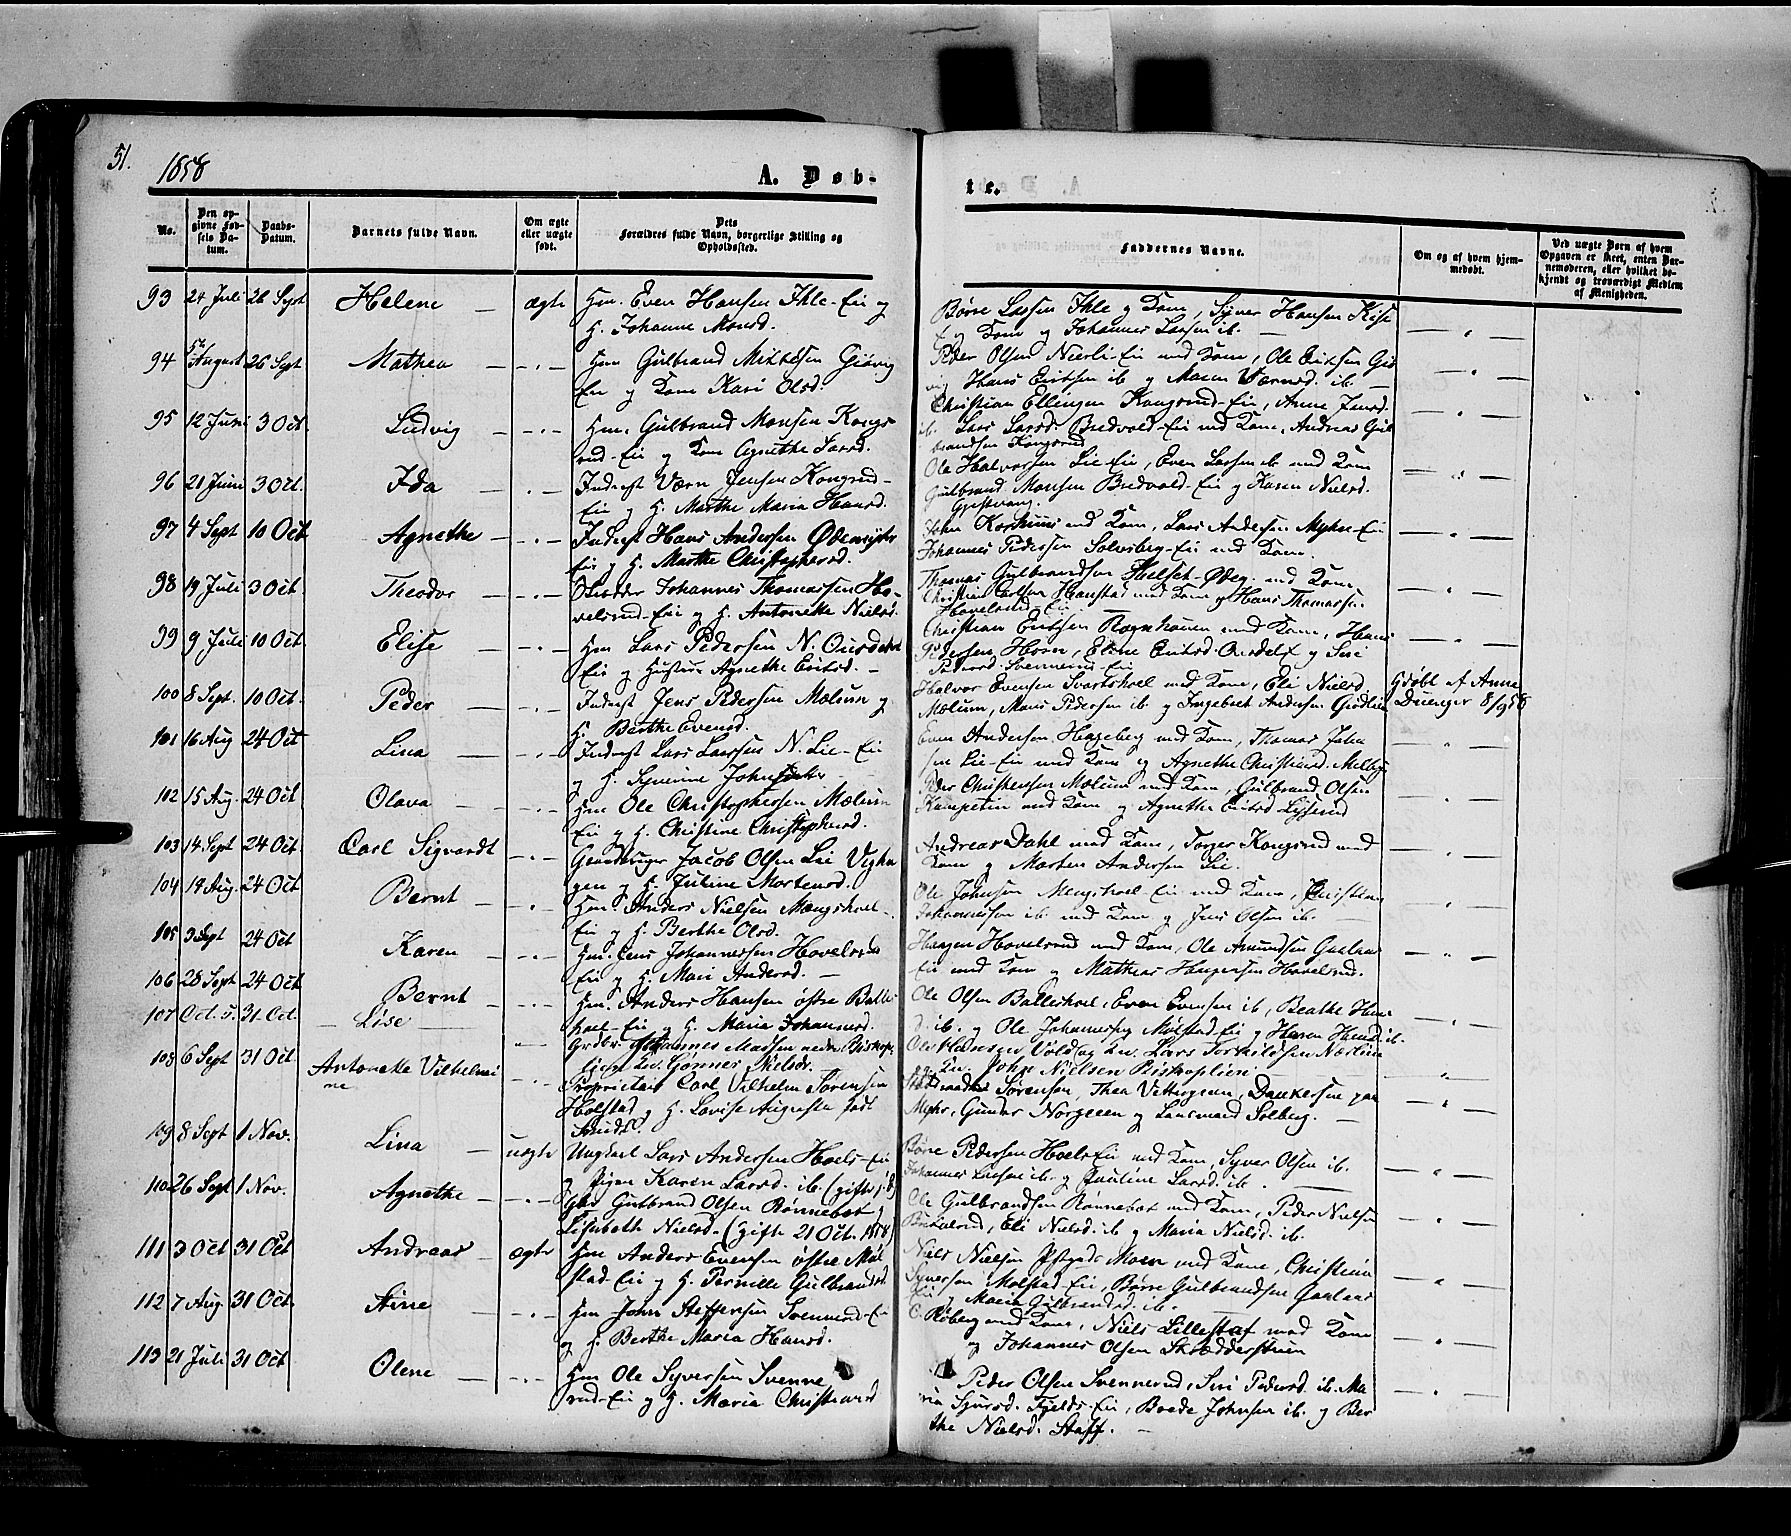 51.
1858
A. Døb-
te.
No.
Den opgivne Fødsels Datum.
Daabs-Datum.
Barnets fulde Navn.
Om ægte eller uægte født.
Dets Forældres fulde Navn, borgerlige Stilling og Opholdssted.
Faddernes Navne.
Om og af hvem hjemmedøbt.
Ved uægte Børn af hvem Opgaven er skeet, enten Barnemoderen, eller hvilket bekjendt og troværdigt Medlem af Menigheden.
93 24 Juli 26 Sept Helene ægte Hm. Even Hansen Ihle-Eie og
H. Johanne Monsd.
Børre Larsen Ihle og Kone, Syver Hansen
og Kone og Johannes Larsen ib.
94 5te August 26 Sept Mathea Hm Gulbrand Mikkelsen Gjøvig
Eie og Kone Kari Olsd.
Peder Olsen Nierli-Eie med Kone, Ole Eriksen Gjø
vig, Hans Eriksen ib og Maren Værnsd. ib.
95 12 Juni 3 Oct. Ludvig Hm. Gulbrand Monsen Kongs
rud-Eie og Kone Agnethe Larsd.
Christian Ellingsen Kongsrud-Eie, Anne Jensd.
ib. Lars Larsd. Bredvold-Eie med Kone, Andreas Gul
brandsen Kongsrud
96 21 Juni 3 Oct. Ida Inderst Værn Jensen Kongsrud-
Eie og H. Marthe Maria Hansd.
Ole Halvorsen Lie-Eie, Even Larsen ib med Kone
Gulbrand Monsen Bredvold-Eie og Karen Nielsd.
97 4 Sept 10 Oct Agnethe Inderst Hans Andersen
Eie og H. Marthe Christophersd.
med Kone, Lars Andersen Myhre-Eie
Johannes Pedersen Solvsberg-Eie med Kone.
98 19 Juli 3 Oct. Theodor Johannes Thomassen Ho-
velsrud-Eie og H. Antonette Nielsd.
Thomas Gulbrandsen Helset-Ødeg. med Kone
med Kone og Hans Thomassen
Hovelsrud Eie
99 9 Juli 10 Oct. Elise Hm Lars Pedersen N. Ousdahl
Eie og Hustru Agnethe Eriksd.
Christian Eriksen med Kone, Hans
Pedersen Horn, Eline Eriksd. og Siri
100 8 Sept. 10 Oct. Peder Inderst Jens Pedersen Mælum og
H. Berthe Evensd.
Halvor Evensen med Kone, Eli Nielsd.
Mælum, Mons Pedersen ib og Ingebret Andersen
Gdøbt af Anne
8/9 58
101 16 Aug 24 Oct Lina Inderst Lars Larsen N. Lie-Eie
og H. Syverine
Even Andersen Hageberg med Kone, Thomas Johan
sen Lie-Eie med Kone og Agnethe Christiansd. Melby
102 15 Aug. 24 Oct Olava Hm Ole Christophersen Mælum
Eie og H. Christine Christophersd.
Peder Christensen Mælum med Kone, Gulbrand Olsen
med Kone og Agnethe Eriksd
103 14 Sept 24 Oct. Carl Sigvardt Gaardbruger Jacob Olsen Lie
og H. Juline Mortensd.
Andreas Dahl med Kone, Torger Kongsrud med
Kone og Morten Andersen Lie.
104 19 Aug. 24 Oct Bernt Hm. Anders Nielsen Mængshoel-
Eie og H. Berthe Olsd.
Ole Johnsen Mengshoel-Eie med Kone, Christian
Johannessen ib. med Kone og Jens Olsen ib.
105 3 Sept 24 Oct Karen Hm. Jens Johannessen Hovelsrud
Eie og H. Mari Andersd.
Haagen Hovelsrud med Kone, Ole Amundsen
Eie med Kone og Mathias Haagensen Hovelsrud.
106 28 Sept 24 Oct Bernt Hm. Anders Hansen østre Balles
hoel-Eie og H. Maria Johannesd.
Ole Olsen Balleshoel, Even Evensen ib, Beathe
107 Oct. 5. 31. Oct. Lise Johannes Madsen nedre Bishop-
Nielsdr.
Ole Hansen Vold og Kv. Lars Torkildsen
og Kv. John Nielsen Bishoplien
108 6 Sept 31 Oct Antonette Vilhelmi
ne
Proprietair Carl Vilhelm Sørensen
Holstad og H. Lovise Augusta født
Sørensen, Thea
Gunder Norgreen og Lensmand Solberg.
109 8 Sept 1 Nov. Lina uægte Ungkarl Lars Andersen Hoels-Eie
og Pigen Karen Larsd. ib.
Børre Pedersen Hoels-Eie med Kone, Syver Olsen ib.
Johannes Larsen ib. og Pauline Larsd. ib.
110 26 Sept 1 Nov. Agnethe Gulbrand Olsen Rønnebæk og
Lisabeth Nielsd. (gifte 21 Oct. 1858)
Ole Gulbrandsen Rønnebæk med Kone, Peder Nielsen
Eli Nielsd. ib og Maria Nielsd. ib.
111 3 Oct 31 Oct Andreas ægte Hm Anders Evensen østre Møl
stad-Eie og H. Pernille Gulbrandsd.
Niels Nielsen Moen med Kone, Christian
Syversen Mølstad-Eie, Børre Gulbrandsen
og Maria Gulbrandsd. ib.
112 7 Aug. 31 Oct. Stine Hm John Steffensen Svennerud-Eie
og H. Berthe Maria Hansd.
Røberg med Kone, Niels Lillestaf med Kone
og Johannes Olsen Skrædderstuen
113 21 Juli 31 Oct Olene Hm Ole Syversen Svenne
rud-Eie og H. Maria Christiansd
Peder Olsen Svennerud, Siri Pedersd. ib. Ma
ria Sjursd. Fjelds-Eie, Johnsen ib. og Ber
the Nielsd. Staff.